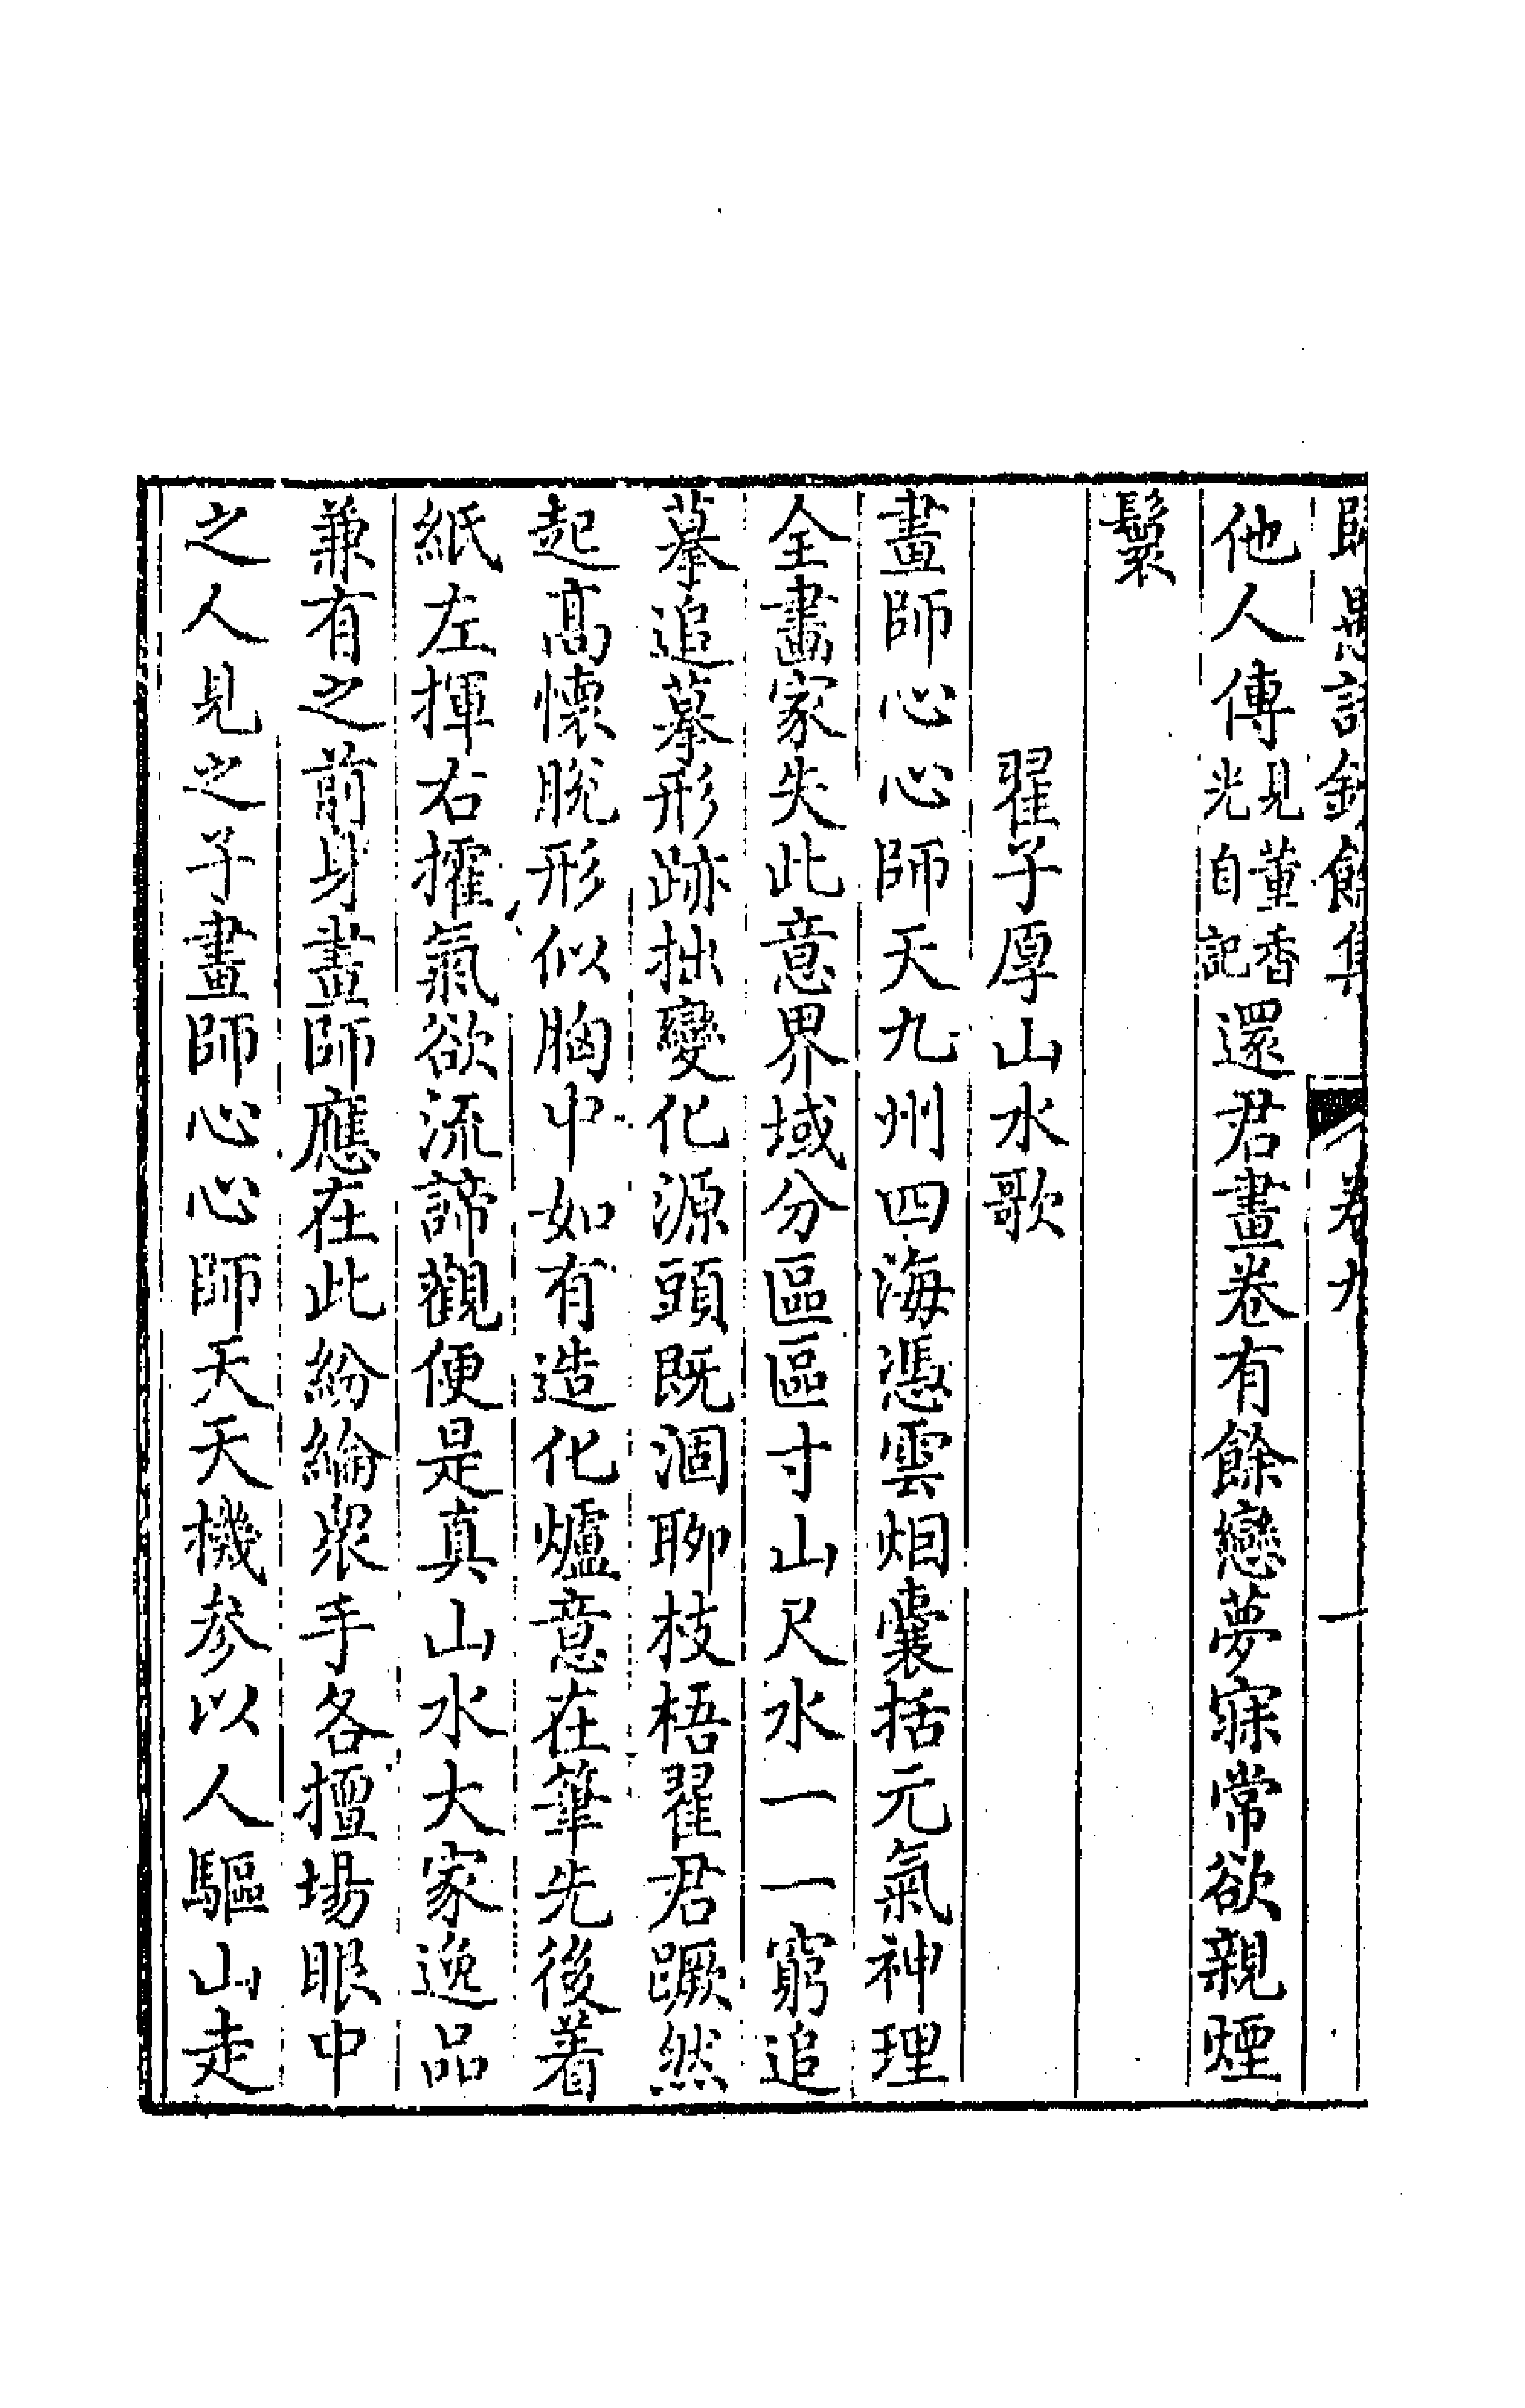 詩鈔餘集 卷九 一
他人傳見董香光自記還君畫卷有餘戀夢寐常欲親煙
鬟
翟子厚山水歌
畫師心心師天九州四海憑雲烟囊括元氣神理
全畫家失此意界域分區區寸山尺水一一窮追
摹追摹形跡拙變化源頭既涸聊枝梧翟君蹶然
起高懷脫形似胸中如有造化爐意在筆先後着
紙左揮右攉氣欲流諦觀便是真山水大家逸品
兼有之前身畫師應在此紛綸衆手各擅場眼中
之人見之子畫師心心師天天機參以人驅山走